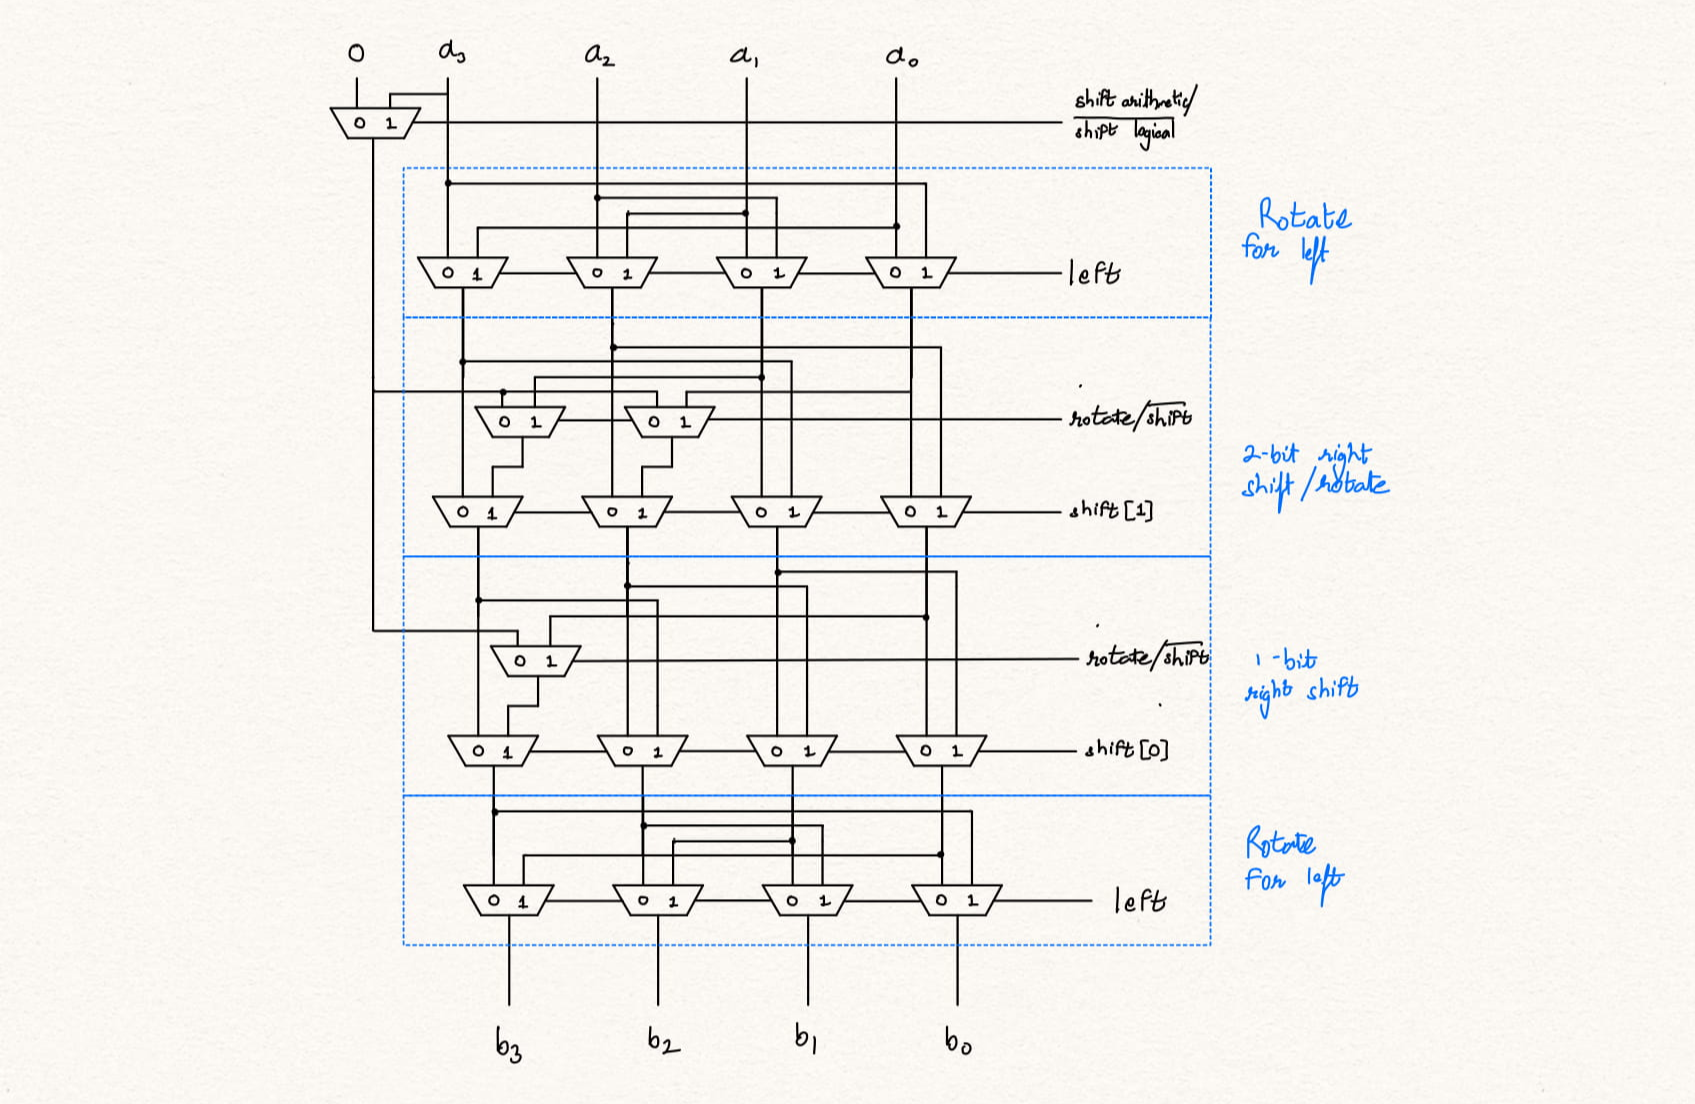 0 a₃ a₂ a₁ a₀
0 1
shift arithmetic/
shift logical
Rotate
for left
0 1 0 1 0 1 0 1 left
0 1 0 1 rotate/shift
2-bit right
shift/rotate
0 1 0 1 0 1 0 1 shift[1]
0 1 rotate/shift
1-bit
right shift
0 1 0 1 0 1 0 1 shift[0]
Rotate
For left
0 1 0 1 0 1 0 1 left
b₃ b₂ b₁ b₀